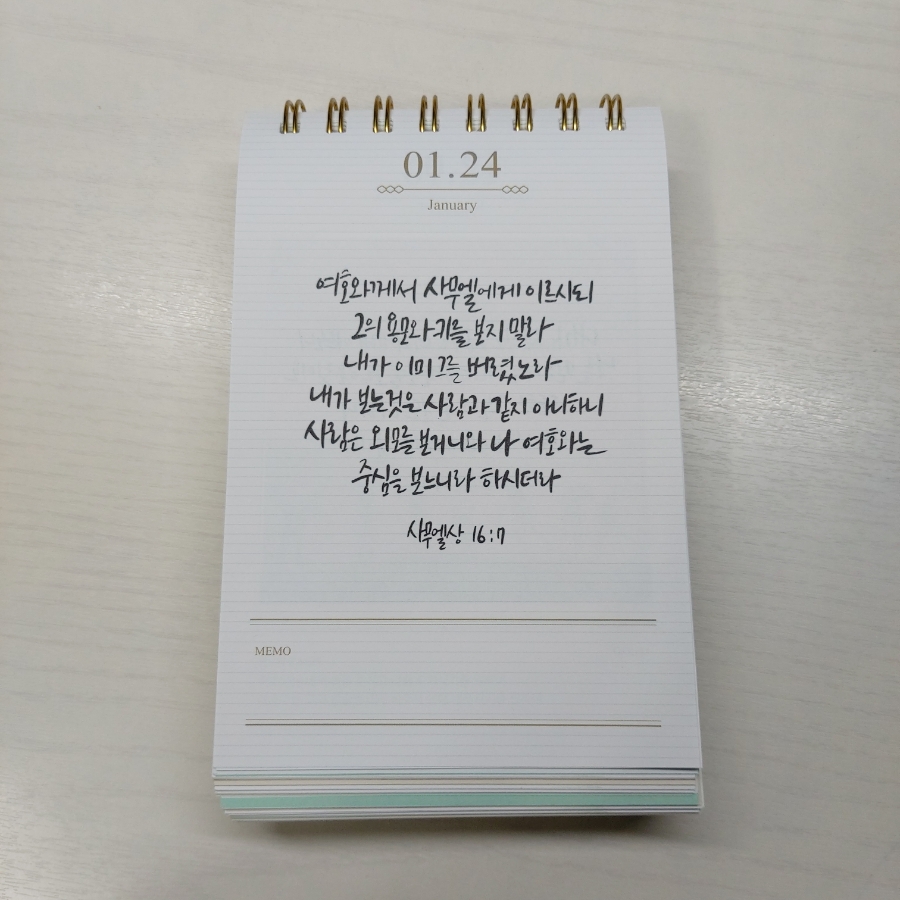 01.24
January
여호와께서 사무엘에게 이르시되
그의 용모와 키를 보지 말라
내가 이미 그를 버렸노라
내가 보는것은 사람과 같지 아니하니
사람은 외모를 보거니와 나 여호와는
중심을 보느니라 하시더라
사무엘상 16:7
MEMO